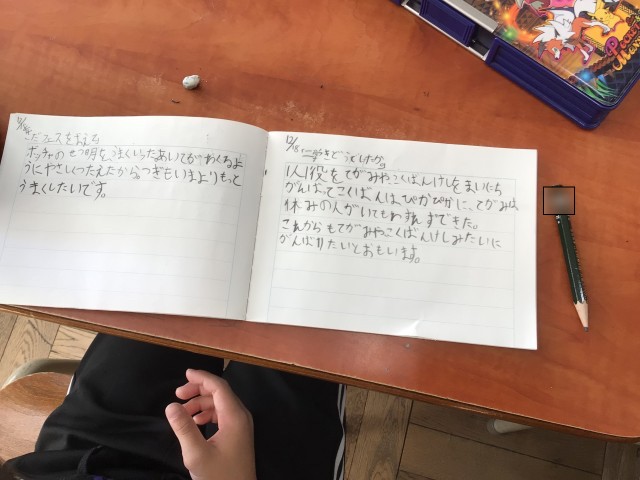 ボッチャのせつ明をうまくいったあいてがわくわよ
うにやさしくつたえたからつぎもいまよりもって
うまくしたいです。
12/18
一人一役をてがみやこくばんけしをまいにち
がんばってこくばんはぴかぴかに、てがみは
休みの人がいてもわすれずできた。
これからもてがみやこくばんけしみたいに
がんばりたいとおもいます。